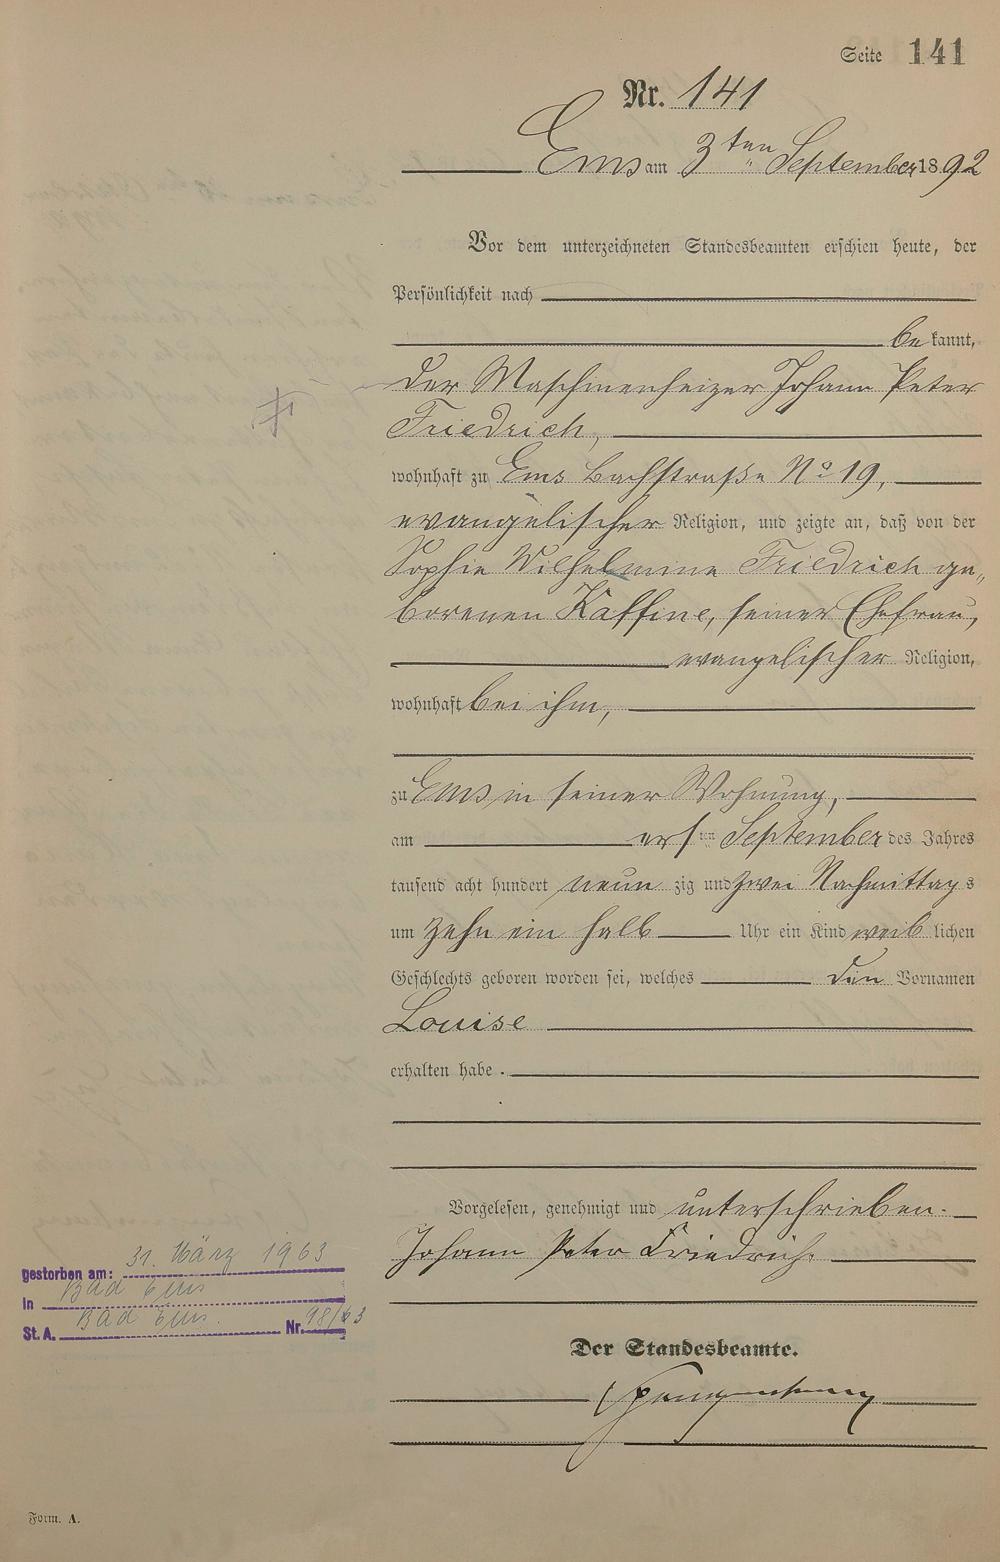 Seite 141
Nr. 141
Ems am 3ten September 1892
Vor dem unterzeichneten Standesbeamten erschien heute, der
Persönlichkeit nach
bekannt,
der Maschinenheizer Johann Peter
Friedrich,
wohnhaft zu Ems Bachstraße No 19,
evangelischer Religion, und zeigte an, daß von der
Sophie Wilhelmine Friedrich ge„
borenen Kaffine, seiner Ehefrau,
evangelischer Religion,
wohnhaft bei ihm,
zu Ems in seiner Wohnung,
am ersten September des Jahres
tausend acht hundert neunzig und zwei Nachmittags
um zehn ein halb Uhr ein Kind weiblichen
Geschlechts geboren worden sei, welches den Vornamen
Louise
erhalten habe.
Vorgelesen, genehmigt und unterschrieben.
Johann Peter Friedrich.
gestorben am: 31. März 1963
in Bad Ems
St. A. Bad Ems. Nr. 98/63
Der Standesbeamte.
Form. A.